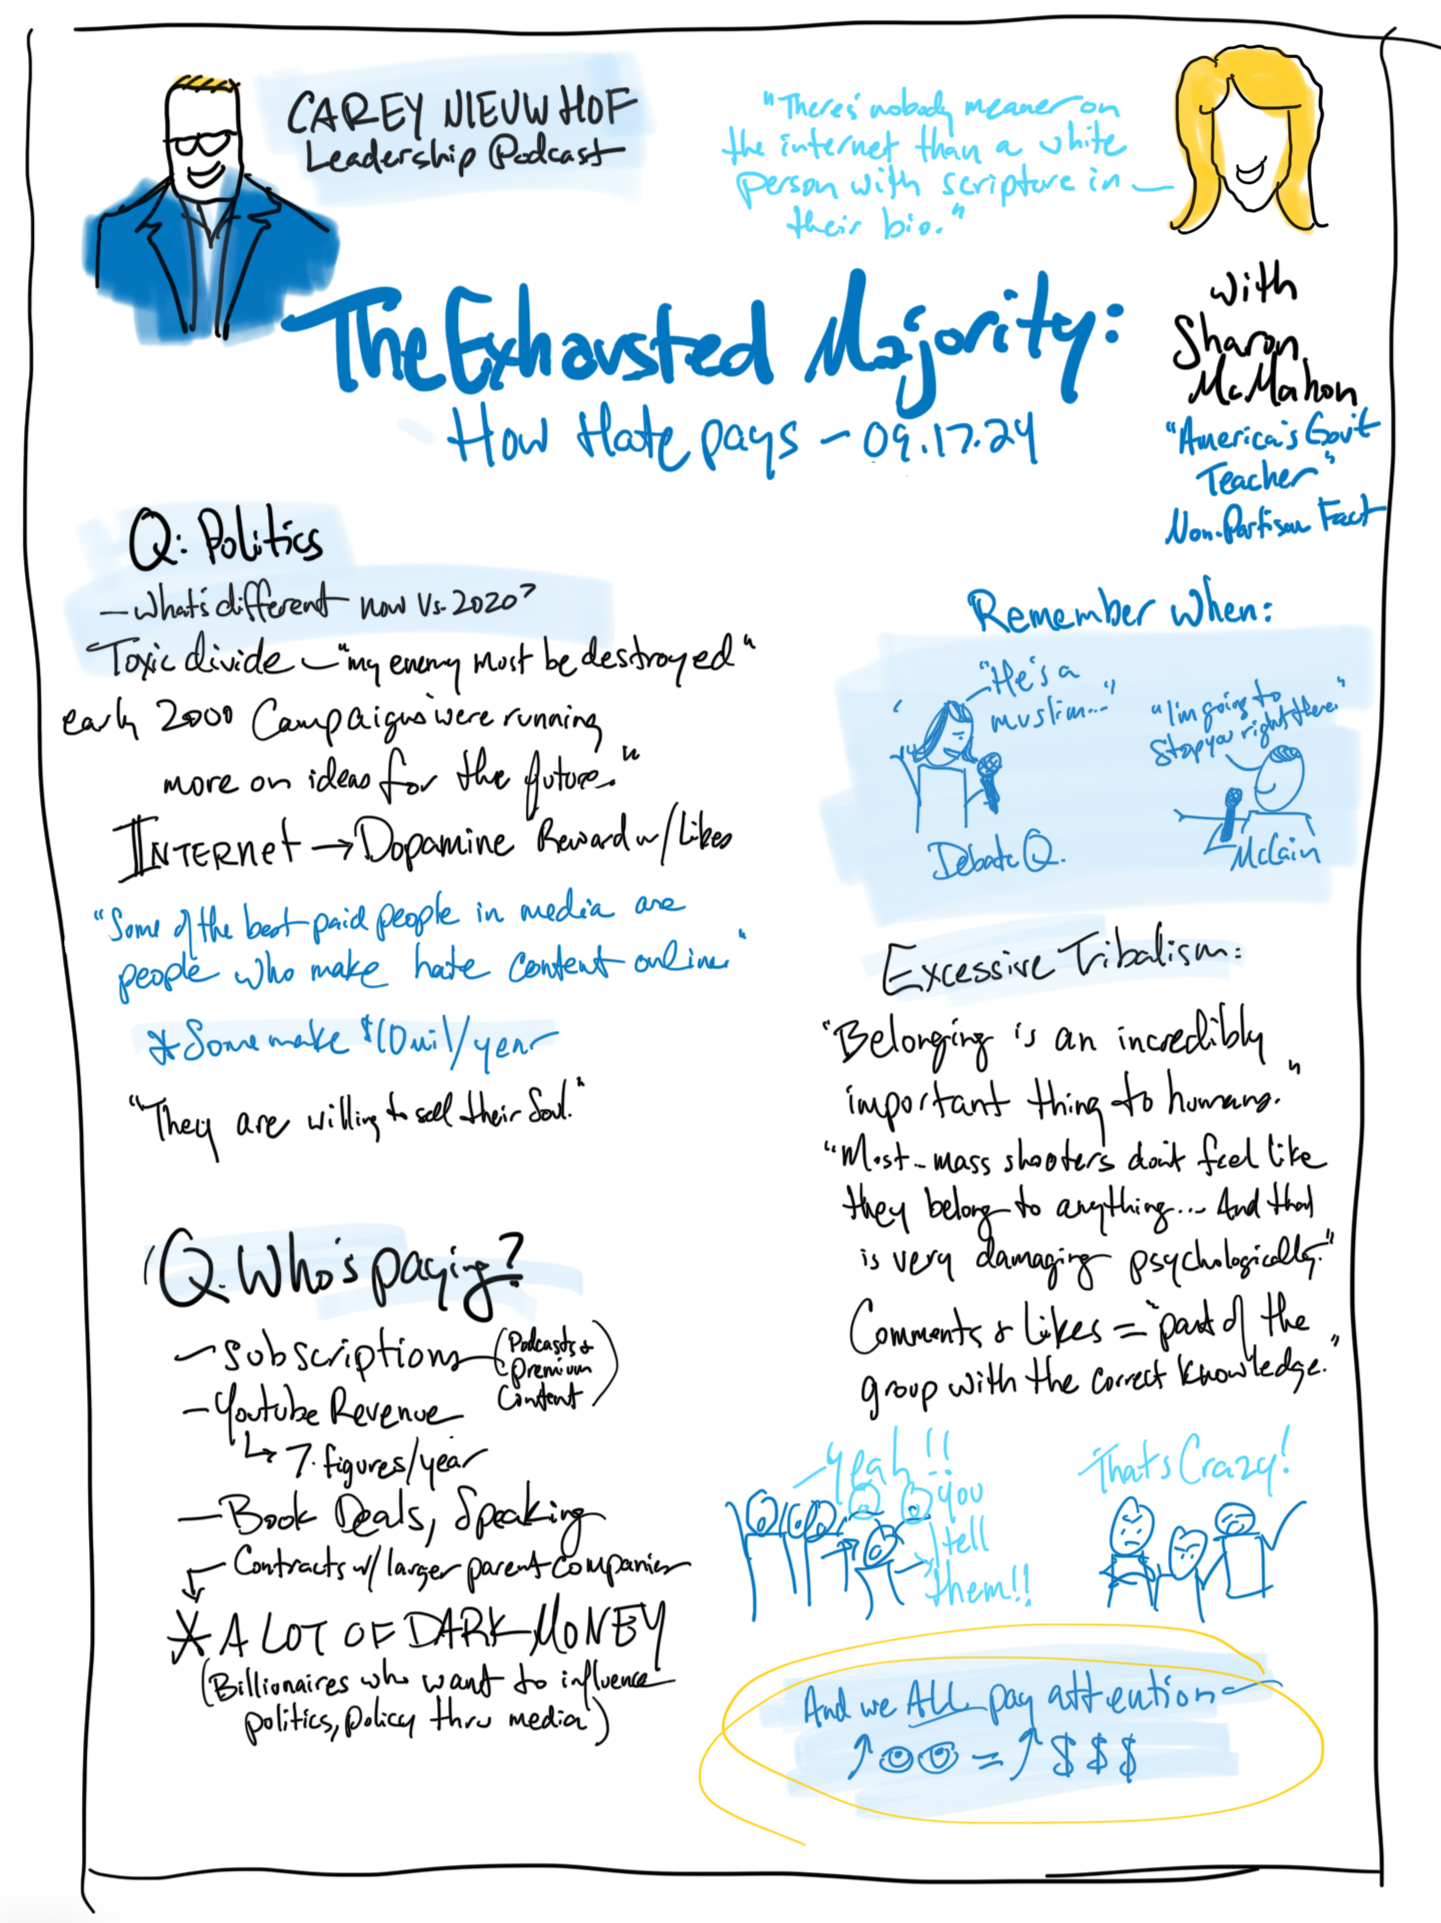 CAREY NIEUWHOF
Leadership Podcast
"There's nobody meaner on
the internet than a white
person with scripture in
their bio."
The Exhausted Majority:
How Hate pays - 09.17.24
with
Sharon
McMahon
"America's Gov't
Teacher"
Non-Partisan Fact
Q: Politics
- What's different now vs. 2020?
Toxic divide - "my enemy must be destroyed"
early 2000 Campaigns were running
more on ideas for the future."
INTERNET → Dopamine Reward w/ Likes
"Some of the best paid people in media are
people who make hate content online."
* Some make $10mil/year
"They are willing to sell their Soul."
Q. Who's paying?
- Subscriptions (Podcasts &
Premium
Content)
- Youtube Revenue
↳ 7. figures/year
- Book Deals, Speaking
- Contracts w/ larger parent companies
* A LOT OF DARK MONEY
(Billionaires who want to influence
politics, policy thru media)
Remember when:
"He's a
muslim..."
"I'm going to
stop you right there."
Debate Q.
McCain
Excessive Tribalism:
"Belonging is an incredibly
important thing to humans."
"Most mass shooters don't feel like
they belong to anything... And that
is very damaging psychologically."
Comments & Likes = "part of the
group with the correct knowledge."
Yeah!!
you
tell
them!!
Thats Crazy!
And we ALL pay attention
↑ 👁👁 = ↑ $ $ $